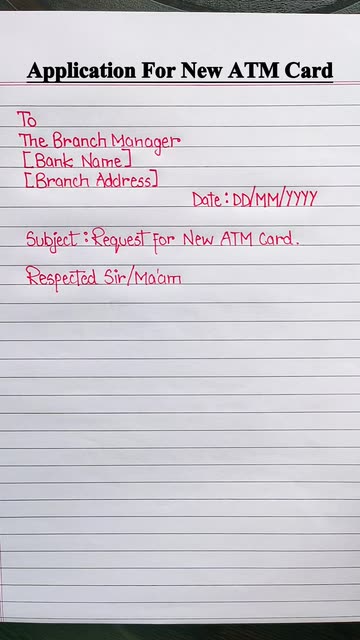 Application For New ATM Card
To
The Branch Manager
[Bank Name]
[Branch Address]
Date : DD/MM/YYYY
Subject : Request For New ATM Card.
Respected Sir/Ma'am